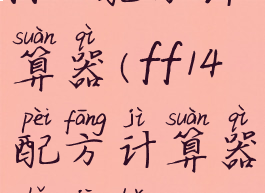 suàn qì
算器(ff14
pèi fāng jì suàn qì
配方计算器